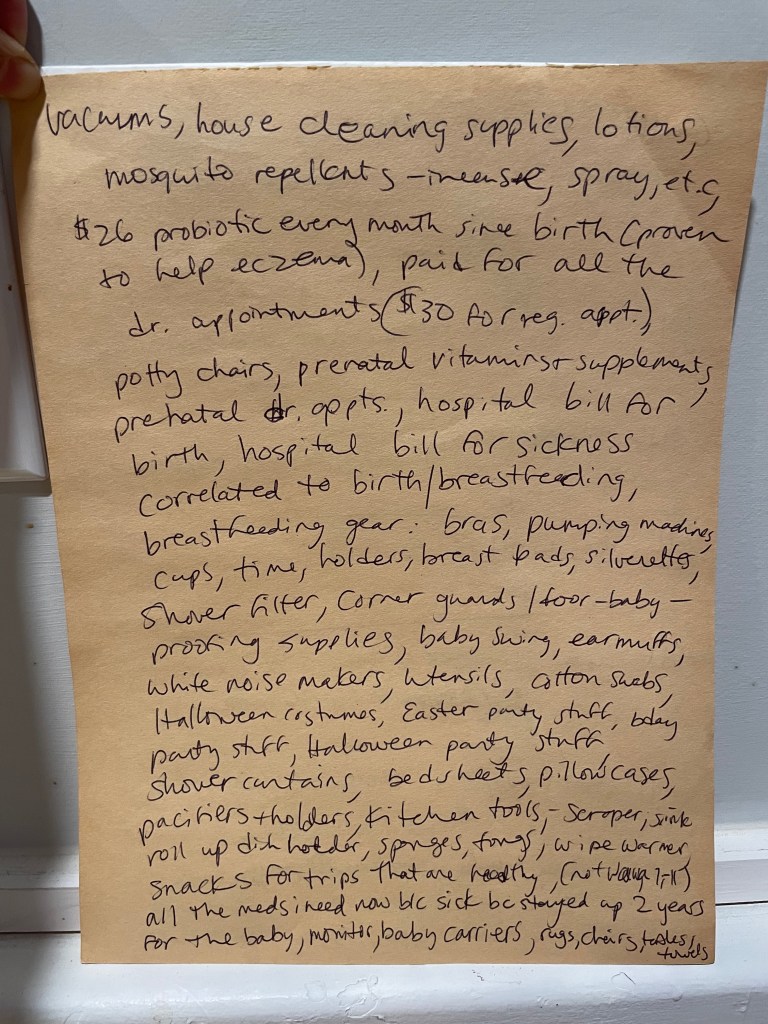 vacuums, house cleaning supplies, lotions,
mosquito repellents - incense, spray, etc,
$26 probiotic every month since birth (proven
to help eczema), paid for all the
dr. appointments ($30 for reg. appt.),
potty chairs, prenatal vitamins + supplements,
prenatal dr. appts., hospital bill for
birth, hospital bill for sickness
correlated to birth/breastfeeding,
breastfeeding gear: bras, pumping machines,
cups, time, holders, breast pads, silverettes,
shower filter, corner guards / -baby-
proofing supplies, baby swing, earmuffs,
white noise makers, utensils, cotton swabs,
Halloween costumes, Easter party stuff, bday
party stuff, Halloween party stuff,
shower curtains, bedsheets, pillowcases,
pacifiers + holders, kitchen tools, - scraper, sink
roll up dish holder, sponges, tongs, wipe warmer,
snacks for trips that are healthy, (not
all the meds i need now b/c sick bc stayed up 2 years
for the baby, monitor, baby carriers, rugs, chairs, tables,
towels